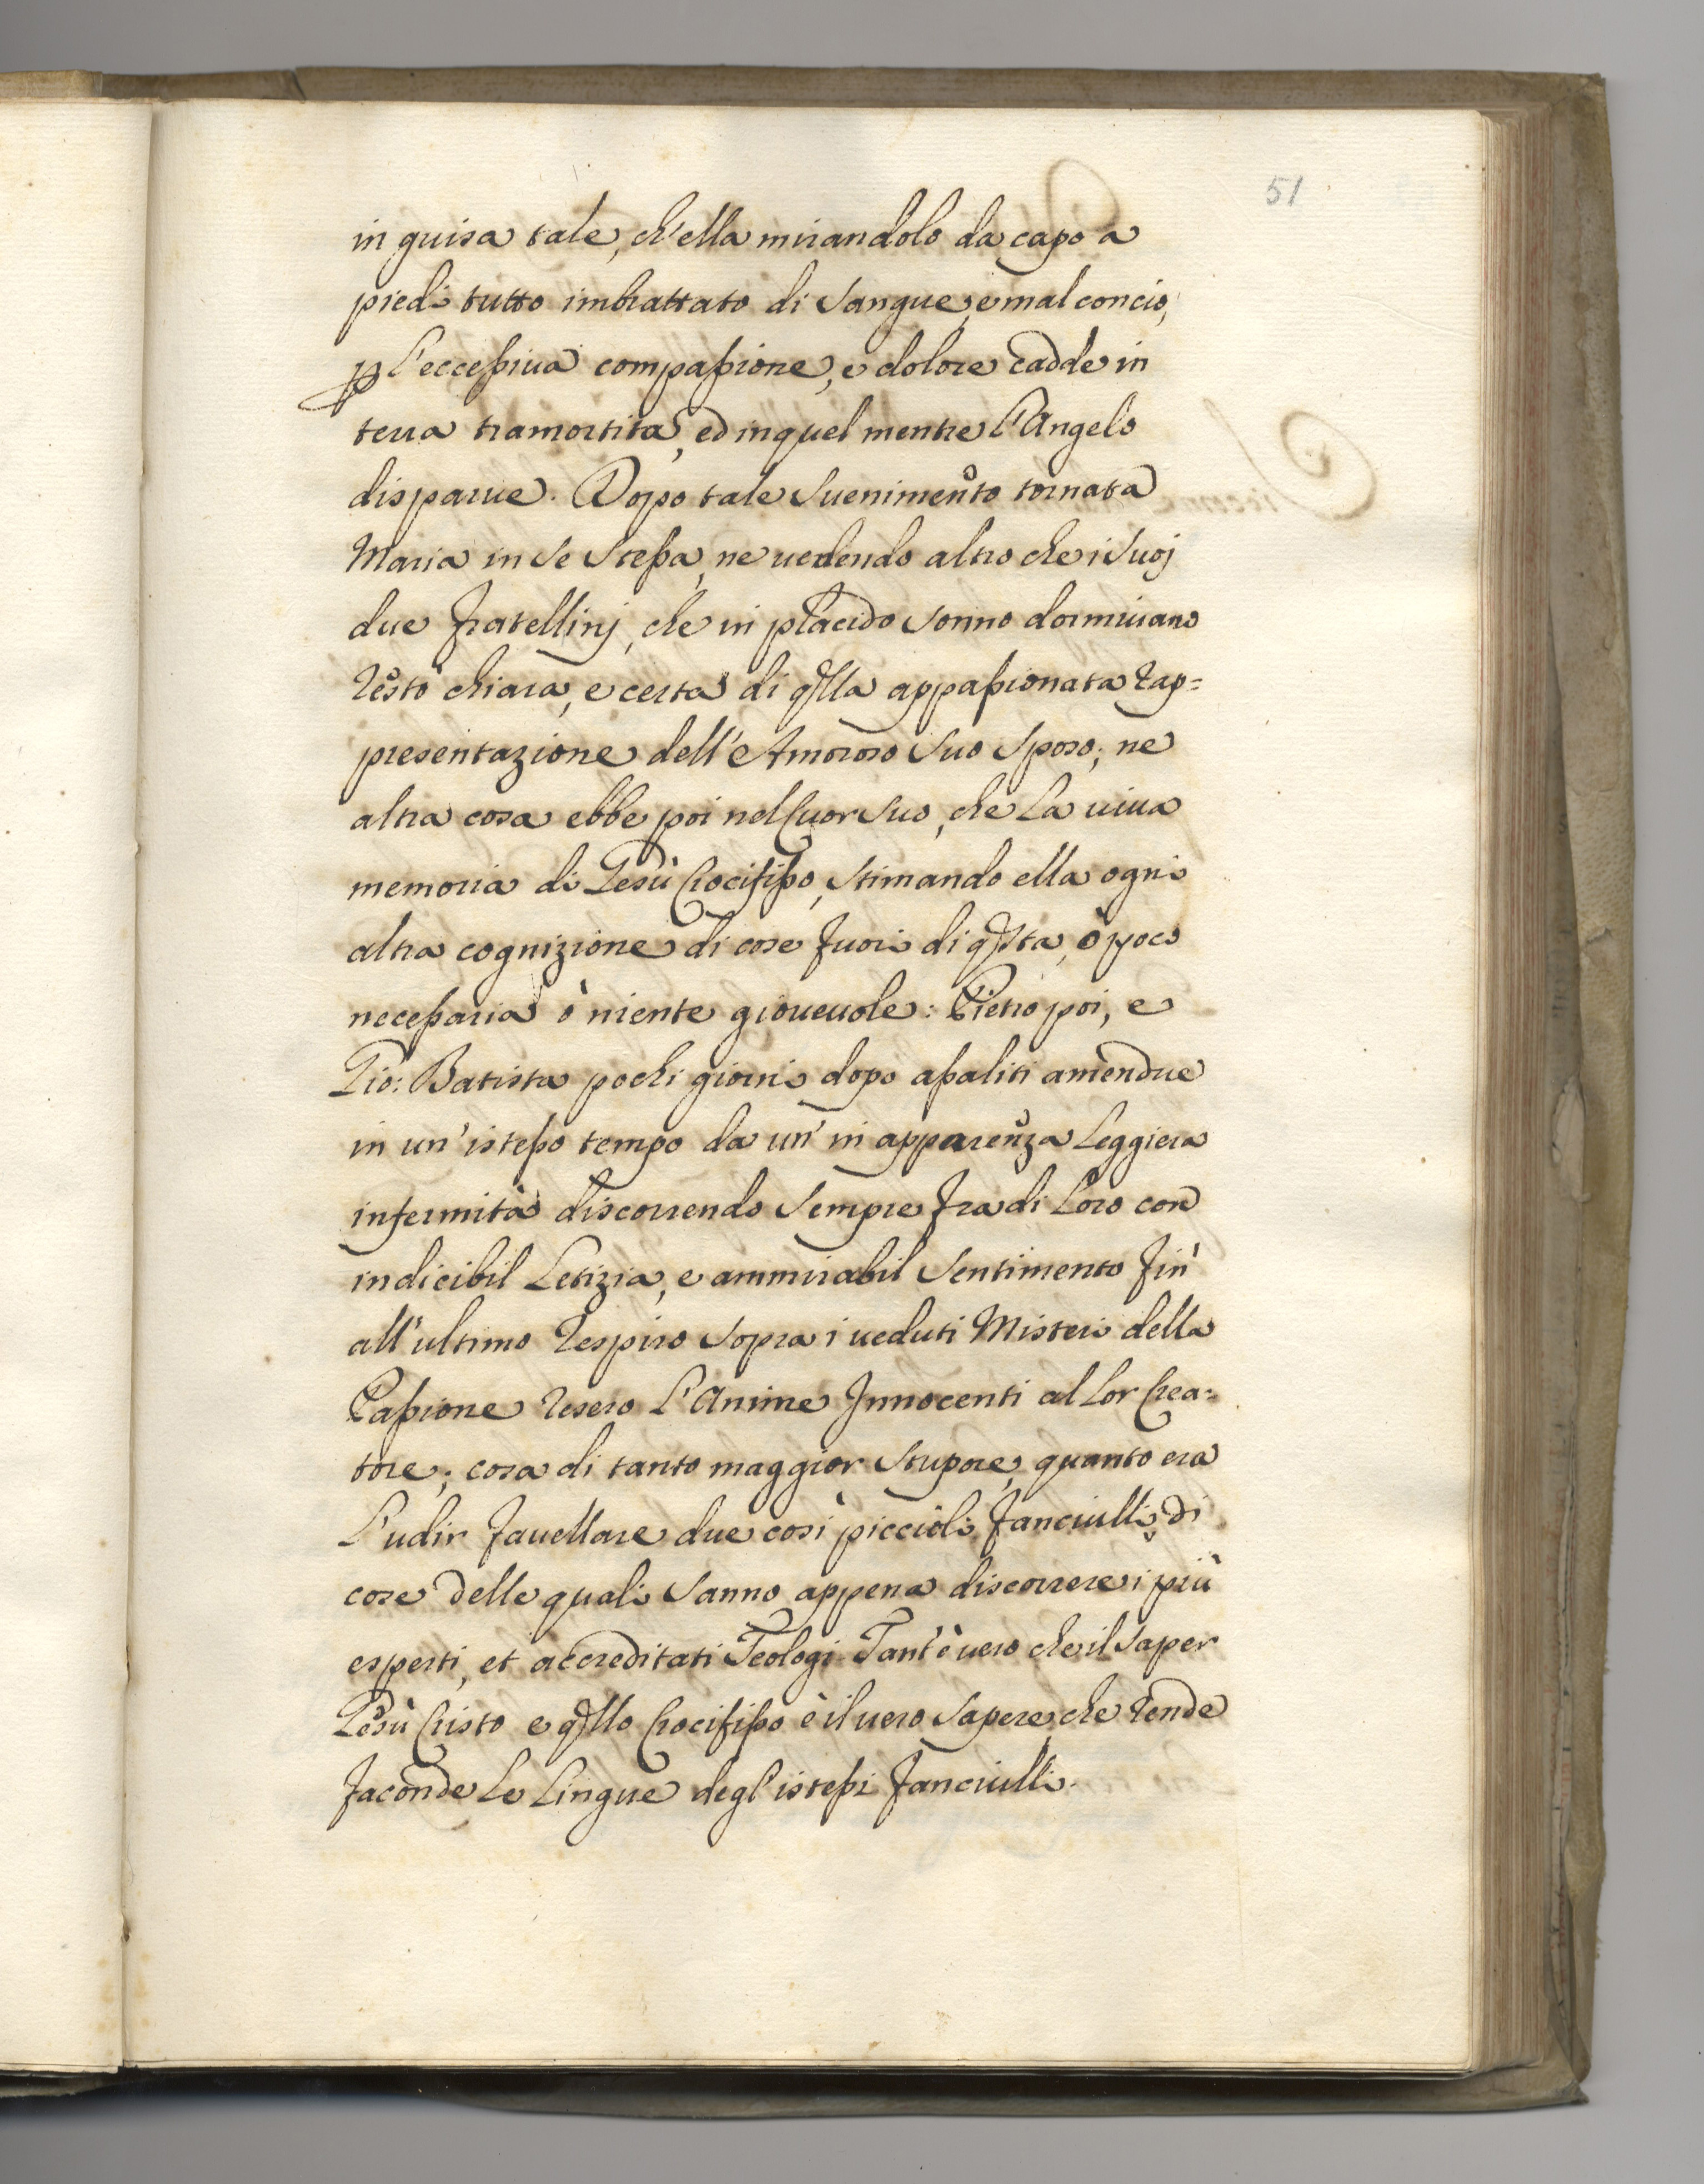 51
in guisa tale, ch'ella mirandolo da capo a
piedi tutto imbrattato di sangue, e mal concio,
p l'eccessiua compassione, e dolore cadde in
terra tramortita, ed in quel mentre l'Angelo
disparue. Dopo tale suenimento tornata
Maria in se stessa, ne uedendo altro che i suoj
due fratellinj, che in placido sonno dormiuano
restò chiara, e certa di qlla appassionata rap=
presentazione dell'Amoroso suo sposo; ne
altra cosa ebbe poi nel Cuor suo, che la uiua
memoria di Gesù Crocifisso, stimando ella ogni
altra cognizione di cose fuori di qsta, ò poco
necessaria ò niente giouevole: Pietro poi, e
Gio: Batista pochi giorni dopo assaliti amendue
in un'istesso tempo da un'in apparenza leggiera
infermità discorrendo sempre fra di loro con
indicibil letizia, e ammirabil sentimento fin'
all'ultimo respiro sopra i ueduti Misteri della
Passione resero l'Anime Innocenti al lor Crea=
tore; cosa di tanto maggior stupore, quanto era
l'udir fauellare due così piccioli fanciulli di
cose delle quali sanno appena discorrere i più
esperti, et accreditati Teologi. Tant'è uero che il saper
Gesù Cristo e qllo Crocifisso è il uero sapere, che rende
faconde le lingue degl'istessi fanciulli.